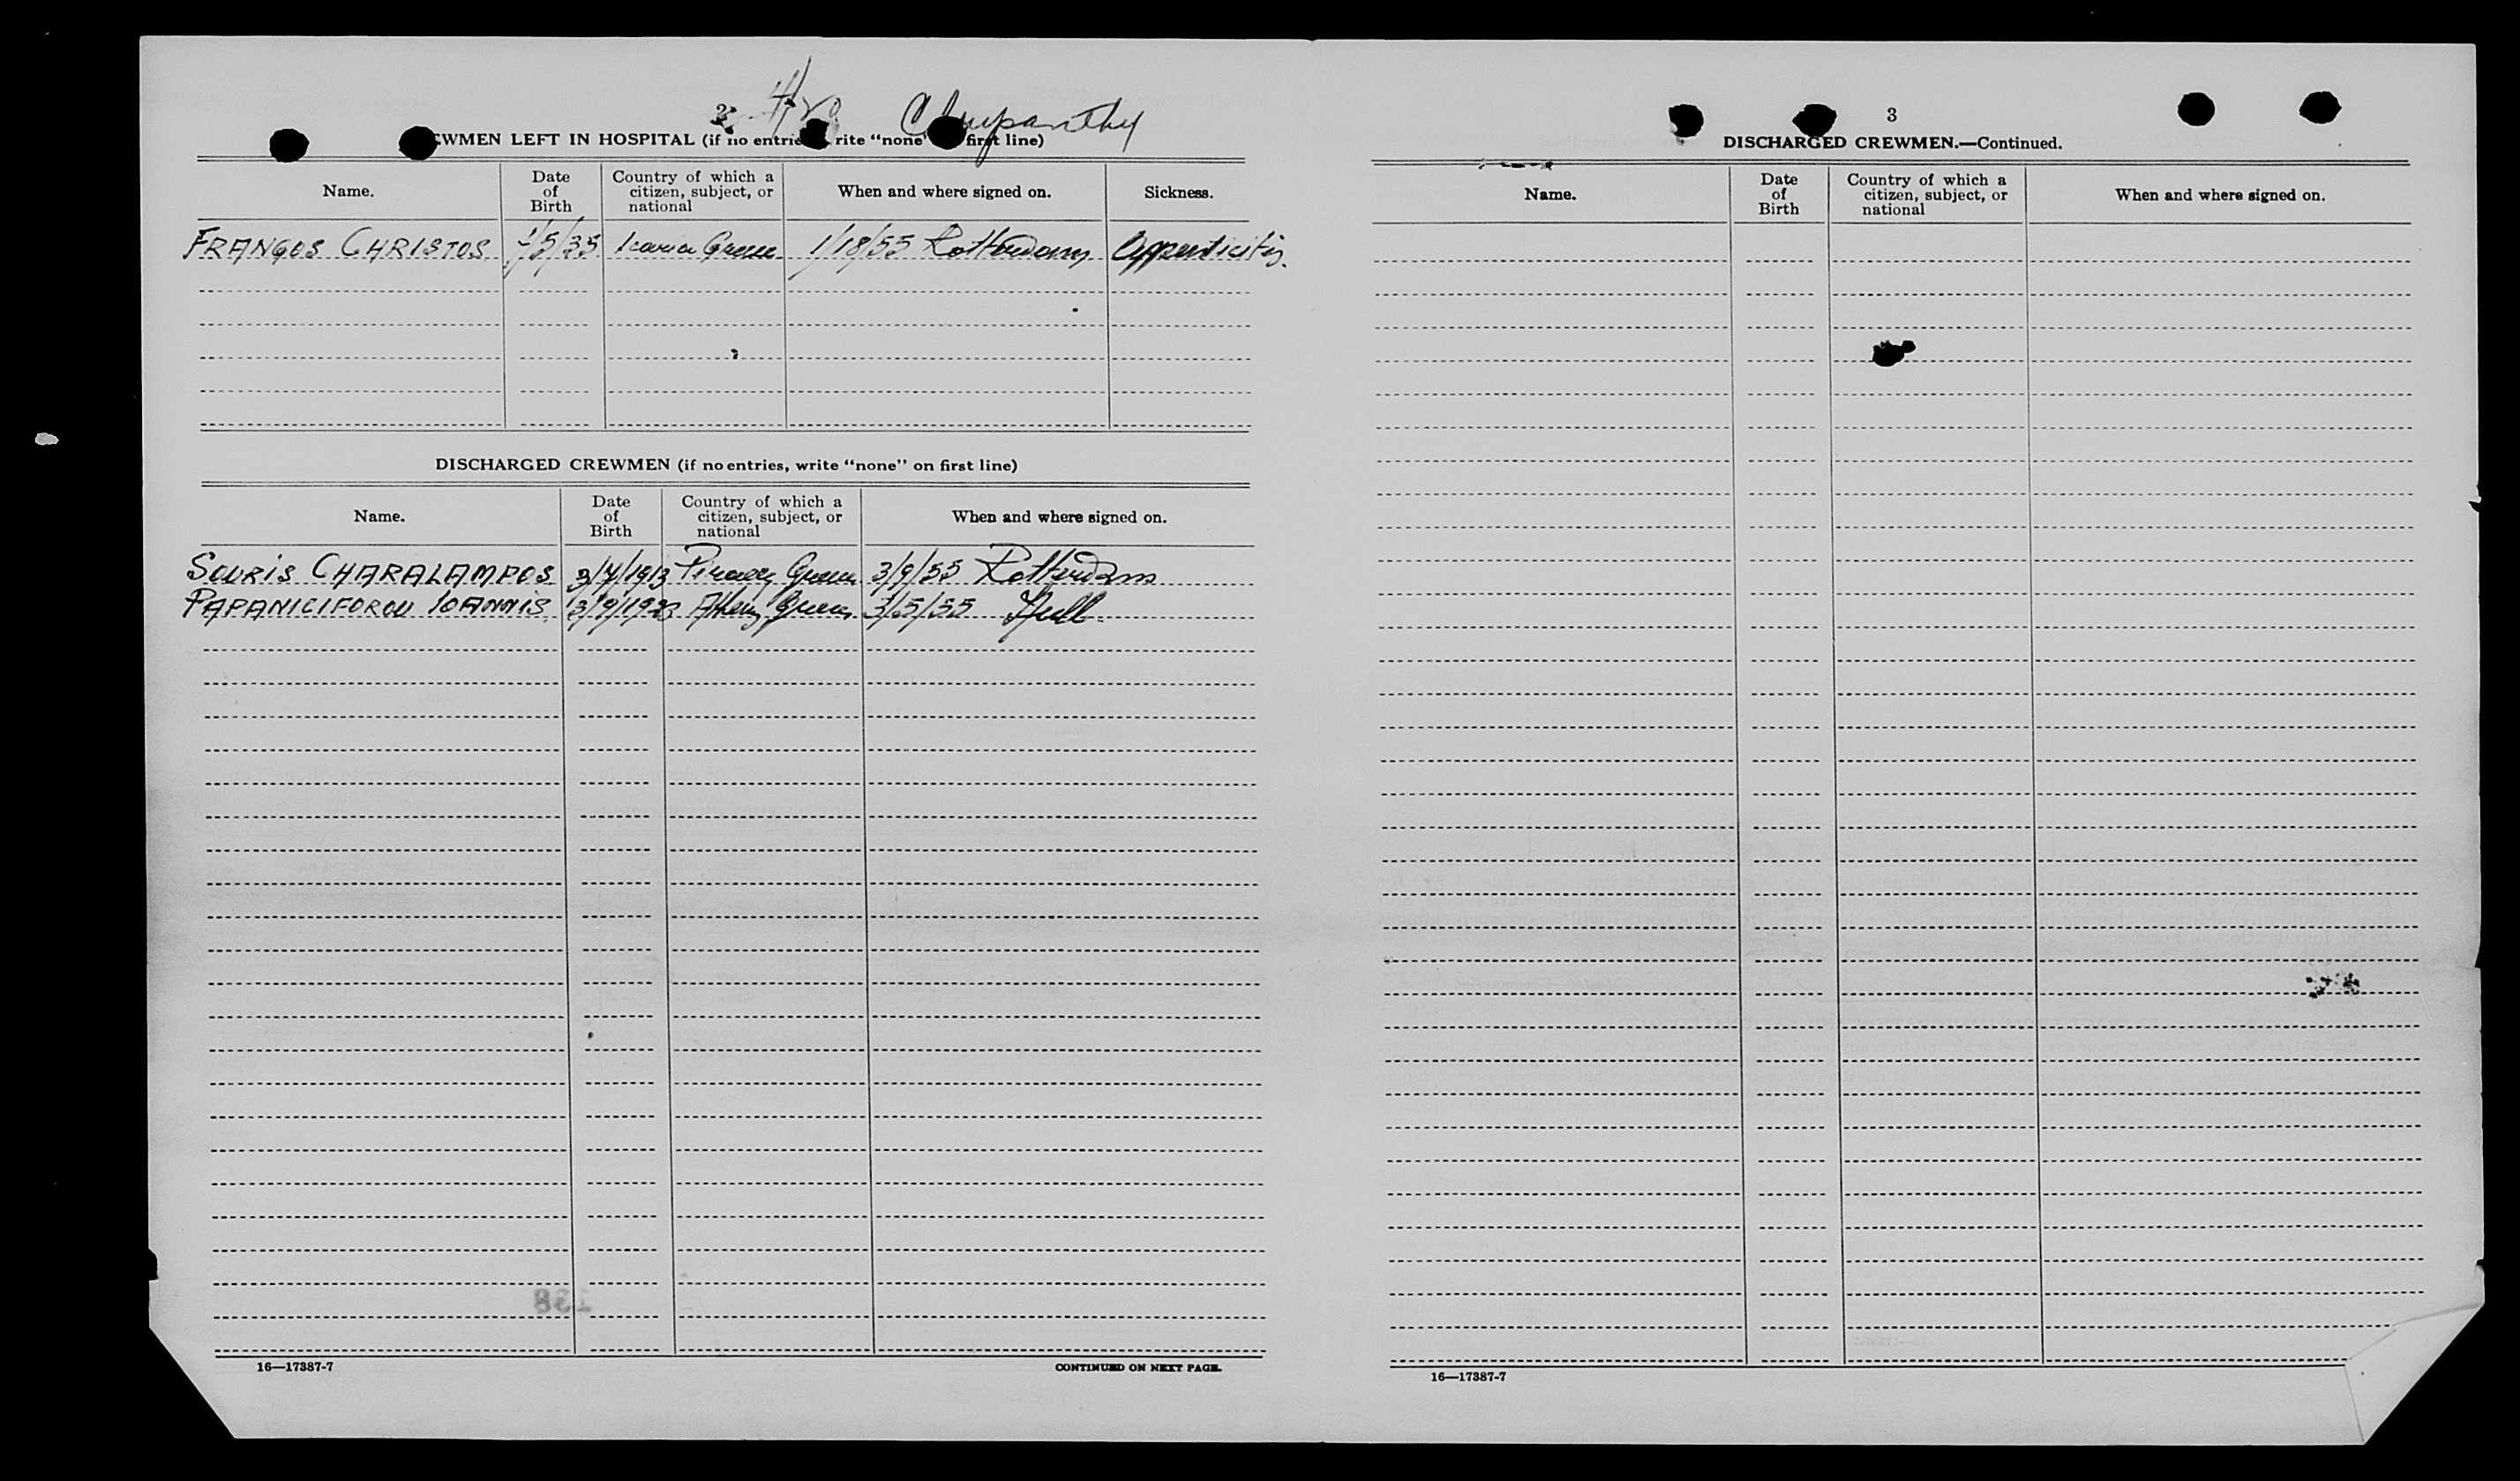 2
CREWMEN LEFT IN HOSPITAL (if no entries, write "none" on first line)
Name.
Date of Birth
Country of which a citizen, subject, or national
When and where signed on.
Sickness.
FRANGOS CHRISTOS 1/5/35 Icaria Greece 1/18/55 Rotterdam Appenticitis.
DISCHARGED CREWMEN (if no entries, write "none" on first line)
Name.
Date of Birth
Country of which a citizen, subject, or national
When and where signed on.
SOURIS CHARALAMPOS 3/7/1913 Piraeus Greece 3/9/55 Rotterdam
PAPANICIFOROU IOANNIS 3/9/1923 Athens Greece 3/5/55 Hull
138
16—17387-7
CONTINUED ON NEXT PAGE.
3
DISCHARGED CREWMEN.—Continued.
Name.
Date of Birth
Country of which a citizen, subject, or national
When and where signed on.
16—17387-7